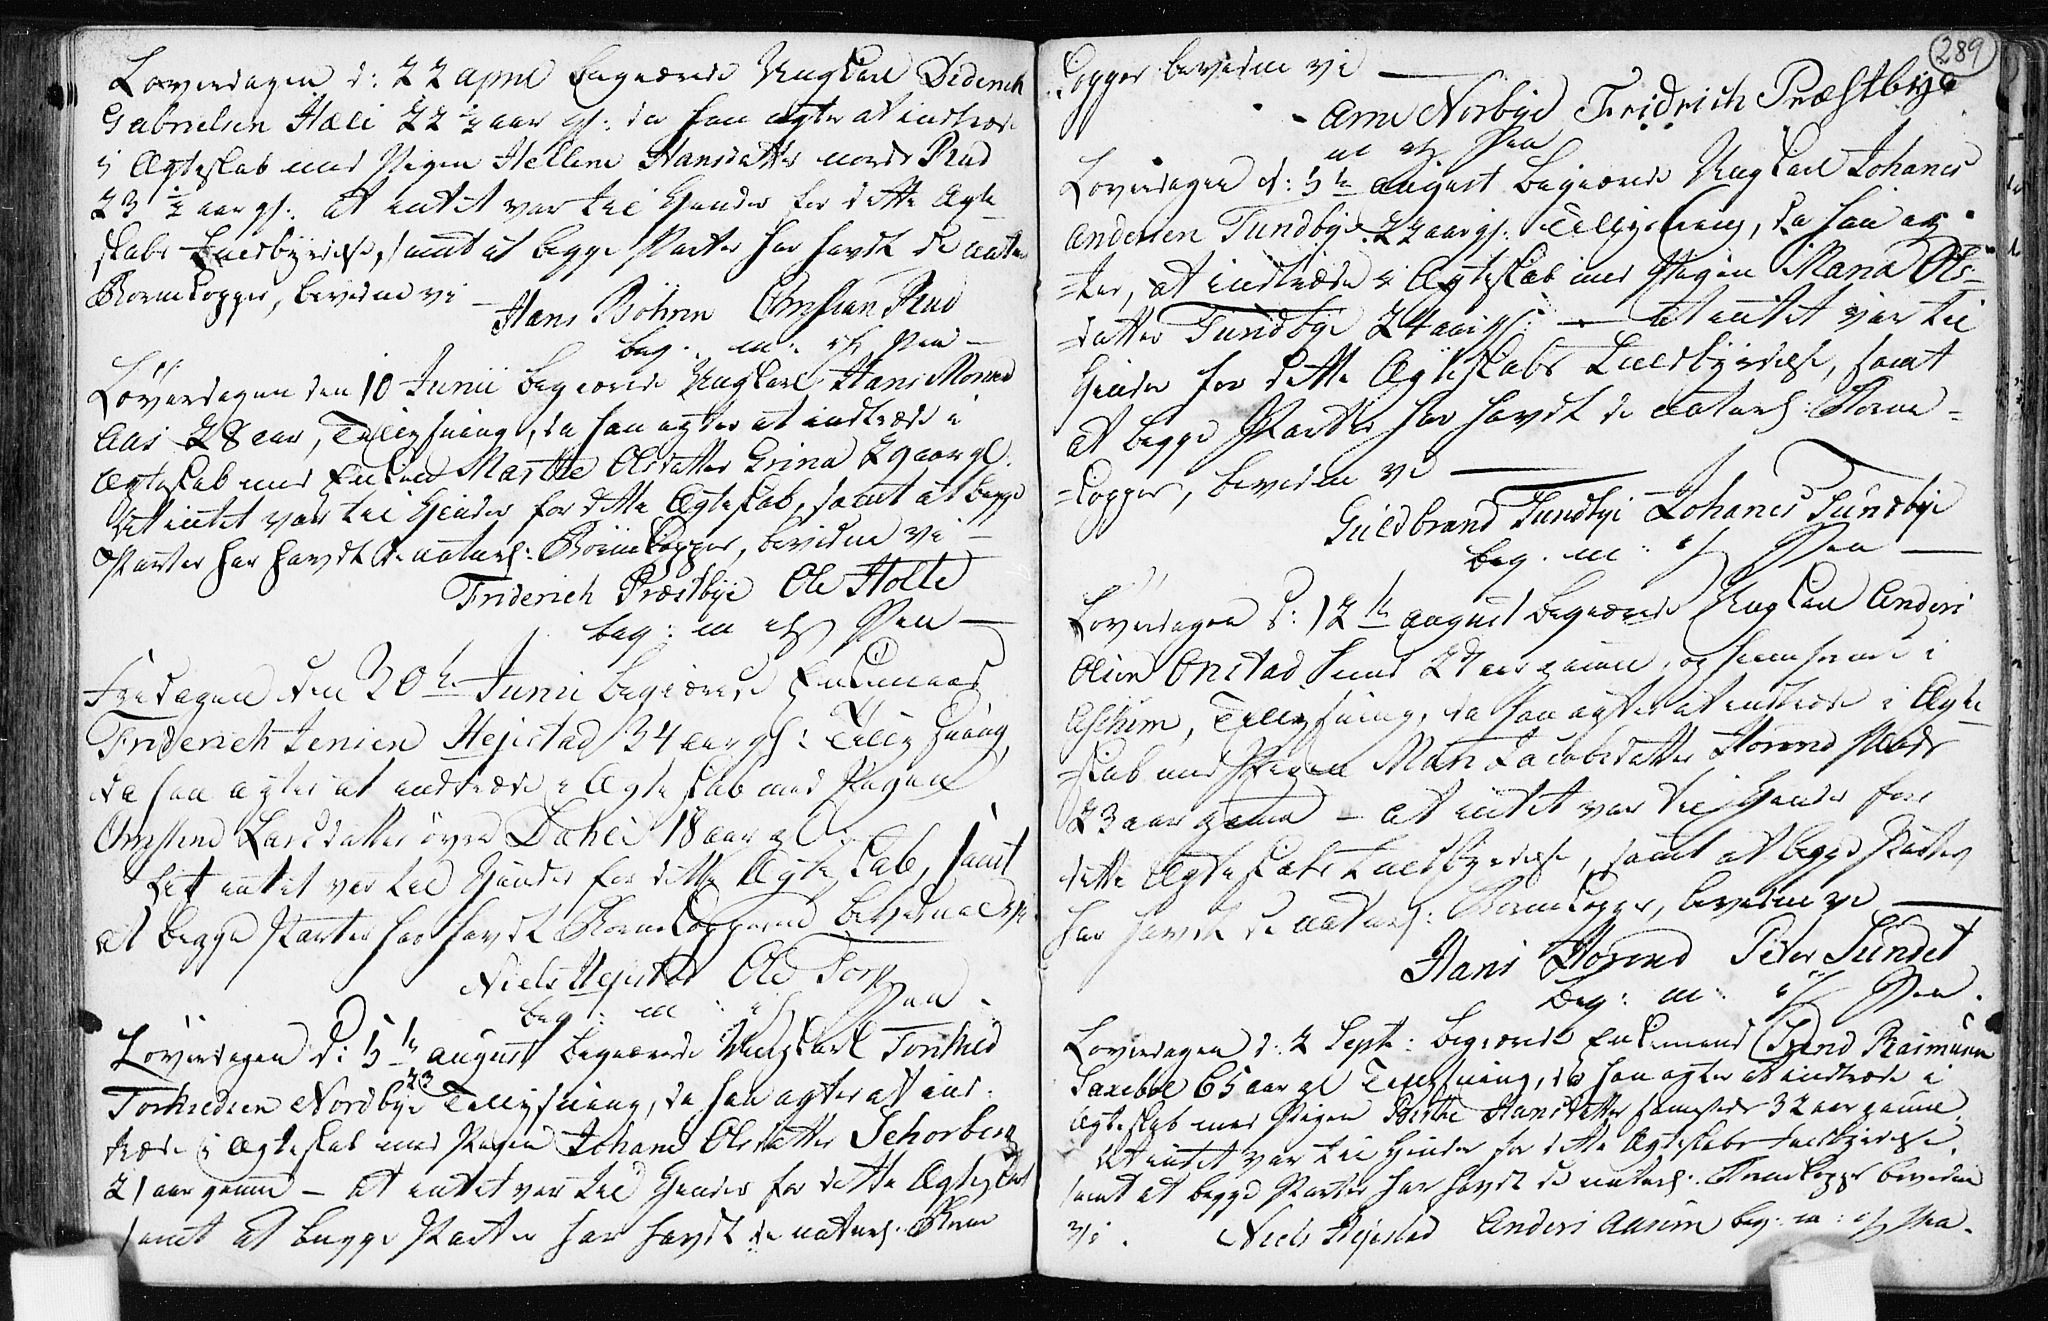 Löverdagen d: 22 april begierede Ungkarl Diderich
Gabrielsen Hæli 22 ½ aar gl: da han agter at indtræde
i Ægteskab med Pigen Hellene Hansdatter nordr Rud
23 ½ aar gl: at intet var til Hinder for dette Ægte-
skabs Fuldbyrdelse, samt at begge Parter har havdt de natur
Bornekopper, bevidne vi —
Hans Böhren Christian Rud
beg: m: ført Pen —
Löverdagen den 10 Junii begierede Ungkarl Hans Monsen
Aas 28 aar, Tillysning, da han agter at indtræde i
Ægteskab med Enken Marthe Olsdatter Grina 29 aar gl.
At intet var til Hinder for dette Ægteskab, samt at begge
Parter har havdt de naturl: Börnekopper, bevidne vi —
Friderich Præstbye Ole Holte
beg: m ført Pen —
Fredagen den 20de Junii begierede Enkemand
Friderich Jensen Hejestad 34 aar gl: Tillysning,
da han agter at indtræde i Ægteskab med Pigen
Christine Larsdatter övre Dahli 18 aar gl.
At intet var til Hinder for dette Ægteskab, samt
at begge Parter har havdt Bornekopperne bevidne vi
Niels Hejestad Ole Torp
beg: m: ført Pen
Löverdagen d: 5te august begierede Ungkarl Torkild
Torkildsen Nordbye 23 Tillysning, da han agter at ind-
træde i Ægteskab med Pigen Johane Olsdatter Schorberg
21 aar gamel — at intet var til Hinder for dette Ægteskab
samt at begge Parter har havdt de naturl. Borne
289
Kopper bevidne vi —
Arne Norbye Fridrich Præstbye
m ført Pen
Löverdagen d: 5te august begierede Ungkarl Johanes
Andersen Sundbye 22 aar gl: Tillysning, da han ag-
ter, at indtræde i Ægteskab med Pigen Maria Ols-
datter Sundbye 24 aar gl: — at intet var til
Hinder for dette Ægteskabs Fuldbyrdelse, samt
at begge Parter har havdt de naturl: Borne-
kopper, bevidne vi —
Guldbrand Sundbye Johanes Sundbye
beg. m: ført Pen —
Löverdagen d: 12te august begierede Ungkarl Anders
Olsen Onstad 27 aar gamel, og i
Aschim, Tillysning, da han agter at indtræde i Ægte-
skab med Pigen Mari Jacobsdatter Horend
23 aar gamel — at intet var til Hinder for
dette Ægteskabs Fuldbyrdelse, samt at begge Parter
har havdt de naturl: Bornekopper, bevidne vi —
Hans Horend Peder Sundet
beg: m: ført Pen.
Löverdagen d: 2 Septr: begierede Enkemand Svend Rasmusen
Saxeböl 65 aar gl Tillysning, da han agter at indtræde i
Ægteskab med Pigen Berthe Hansdatter sammesteds 32 aar gamel
At intet var til Hinder for dette Ægteskabs Fuldbyrdelse
samt at begge Parter har havdt de naturl. Bornekopper bevidne
vi. Niels Hejestad Anders Aasim beg: m: ført Pen.